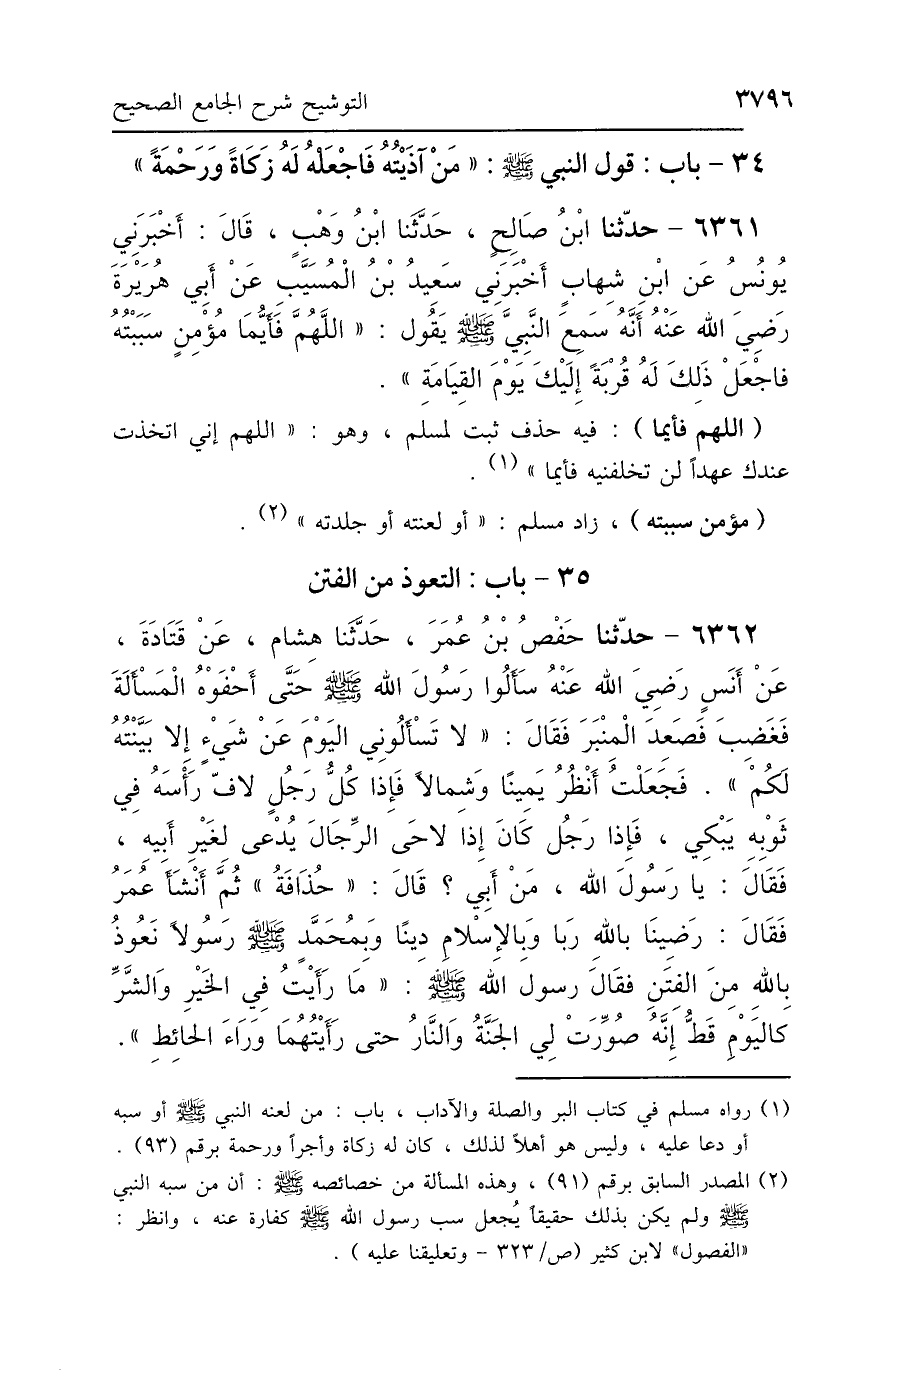 ٣٧٩٦ التوشيح شرح الجامع الصحيح
٣٤ - باب : قول النبي ﷺ : « مَنْ آذَيْتُهُ فَاجْعَلْهُ لَهُ زَكَاةً وَرَحْمَةً »
٦٣٦١ - حدّثنا ابْنُ صَالِحٍ ، حَدَّثَنا ابْنُ وَهْبٍ ، قَالَ : أَخْبَرَنِي
يُونُسُ عَنِ ابْنِ شِهابٍ أَخْبَرَنِي سَعِيدُ بْنُ الْمُسَيَّبِ عَنْ أَبِي هُرَيْرَةَ
رَضِيَ اللهُ عَنْهُ أَنَّهُ سَمِعَ النَّبِيَّ ﷺ يَقُول : « اللَّهُمَّ فَأَيُّمَا مُؤْمِنٍ سَبَبْتُهُ
فاجْعَلْ ذَلِكَ لَهُ قُرْبَةً إِلَيْكَ يَوْمَ القِيَامَةِ » .
( اللهم فأيما ) : فيه حذف ثبت لمسلم ، وهو : « اللهم إني اتخذت
عندك عهداً لن تخلفنيه فأيما » (١) .
( مؤمن سببته ) ، زاد مسلم : « أو لعنته أو جلدته » (٢) .
٣٥ - باب : التعوذ من الفتن
٦٣٦٢ - حدّثنا حَفْصُ بْنُ عُمَرَ ، حَدَّثَنا هِشام ، عَنْ قَتَادَةَ ،
عَنْ أَنَسٍ رَضِيَ اللهُ عَنْهُ سَأَلُوا رَسُولَ اللهِ ﷺ حَتَّى أَحْفَوْهُ الْمَسْأَلَةَ
فَغَضِبَ فَصَعِدَ الْمِنْبَرَ فَقَالَ : « لا تَسْأَلُونِي اليَوْمَ عَنْ شَيْءٍ إِلا بَيَّنْتُهُ
لَكُمْ » . فَجَعَلْتُ أَنْظُرُ يَمِينًا وَشمالاً فَإِذا كُلُّ رَجُلٍ لافٌ رَأْسَهُ فِي
ثَوْبِهِ يَبْكِي ، فَإِذا رَجُل كَانَ إِذا لاحَى الرِّجَالَ يُدْعَى لِغَيْرِ أَبِيهِ ،
فَقَالَ : يا رَسُولَ اللهِ ، مَنْ أَبِي ؟ قالَ : « حُذَافَةُ » ثُمَّ أَنْشَأَ عُمَرُ
فَقَالَ : رَضِينَا بِاللهِ رَبا وَبِالإِسْلامِ دِينًا وَبِمُحَمَّدٍ ﷺ رَسُولاً نَعُوذُ
بِاللهِ مِنَ الفِتَنِ فقَالَ رسول الله ﷺ : « مَا رَأَيْتُ فِي الخَيْرِ وَالشَّرِّ
كاليَوْمِ قَطُّ إِنَّهُ صُوِّرَتْ لِي الجَنَّةُ وَالنَّارُ حتى رَأَيْتُهُمَا وَرَاءَ الحائِطِ ».
(١) رواه مسلم في كتاب البر والصلة والآداب ، باب : من لعنه النبي ﷺ أو سبه
أو دعا عليه ، وليس هو أهلاً لذلك ، كان له زكاة وأجراً ورحمة برقم (٩٣) .
(٢) المصدر السابق برقم (٩١) ، وهذه المسألة من خصائصه ﷺ : أن من سبه النبي
ﷺ ولم يكن بذلك حقيقاً يُجعل سب رسول الله ﷺ كفارة عنه ، وانظر :
«الفصول» لابن كثير (ص/٣٢٣ - وتعليقنا عليه ) .